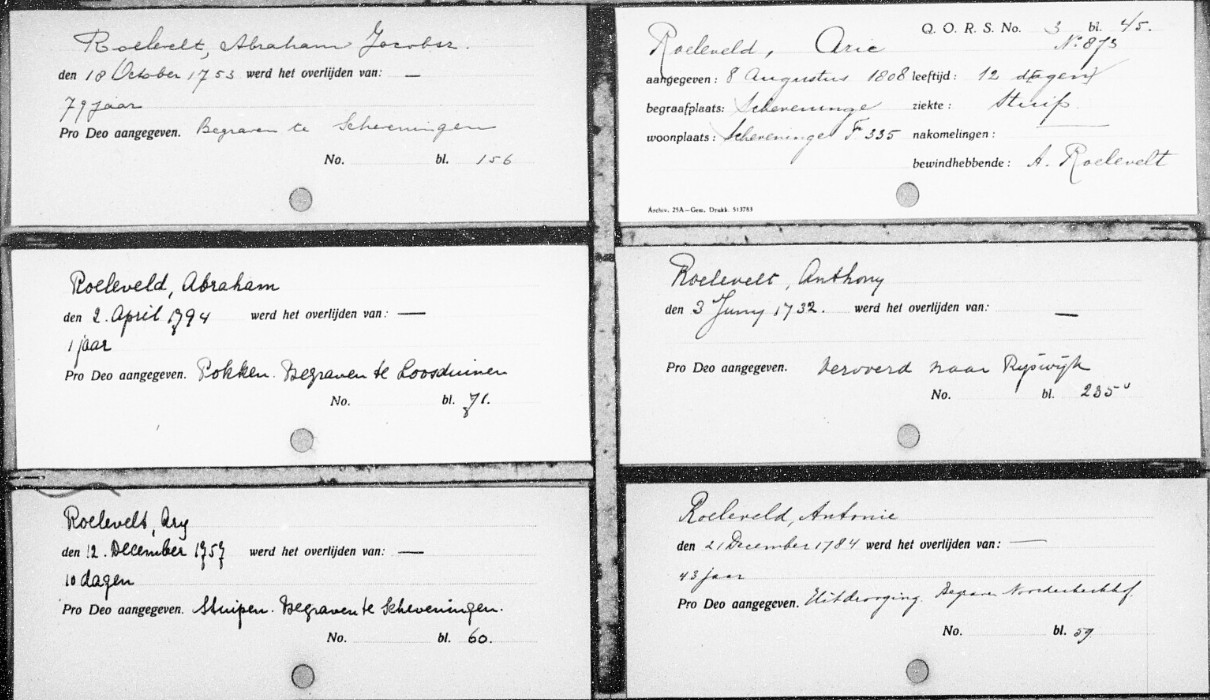 Roelevelt, Abraham Jacobsz.
den 18 October 1753 werd het overlijden van: —
79 jaar
Pro Deo aangegeven. Begraven te Scheveningen
No. bl. 156
Roeleveld, Abraham
den 2. April 1794 werd het overlijden van: —
1 jaar
Pro Deo aangegeven. Pokken. Begraven te Loosduinen
No. bl. 71.
Roelevelt, Ary
den 12. December 1757 werd het overlijden van: —
10 dagen
Pro Deo aangegeven. Stuipen. Begraven te Scheveningen.
No. bl. 60.
Q. O. R. S. No. 3 bl. 45.
Roeleveld, Arie No 873
aangegeven: 8 Augustus 1808 leeftijd: 12 dagen
begraafplaats: Scheveninge ziekte: Stuip.
woonplaats: Scheveninge F 335 nakomelingen: —
bewindhebbende: A. Roelevelt
Archiv. 25A—Gem. Drukk. 513783
Roelevelt, Anthony
den 3 Juny 1732. werd het overlijden van: —
Pro Deo aangegeven. vervoerd naar Ryswijk
No. bl. 235
Roeleveld, Antonie
den 21 December 1784 werd het overlijden van: —
43 jaar
Pro Deo aangegeven. Uitdrooging. Begraven Noorderkerkhof.
No. bl. 59